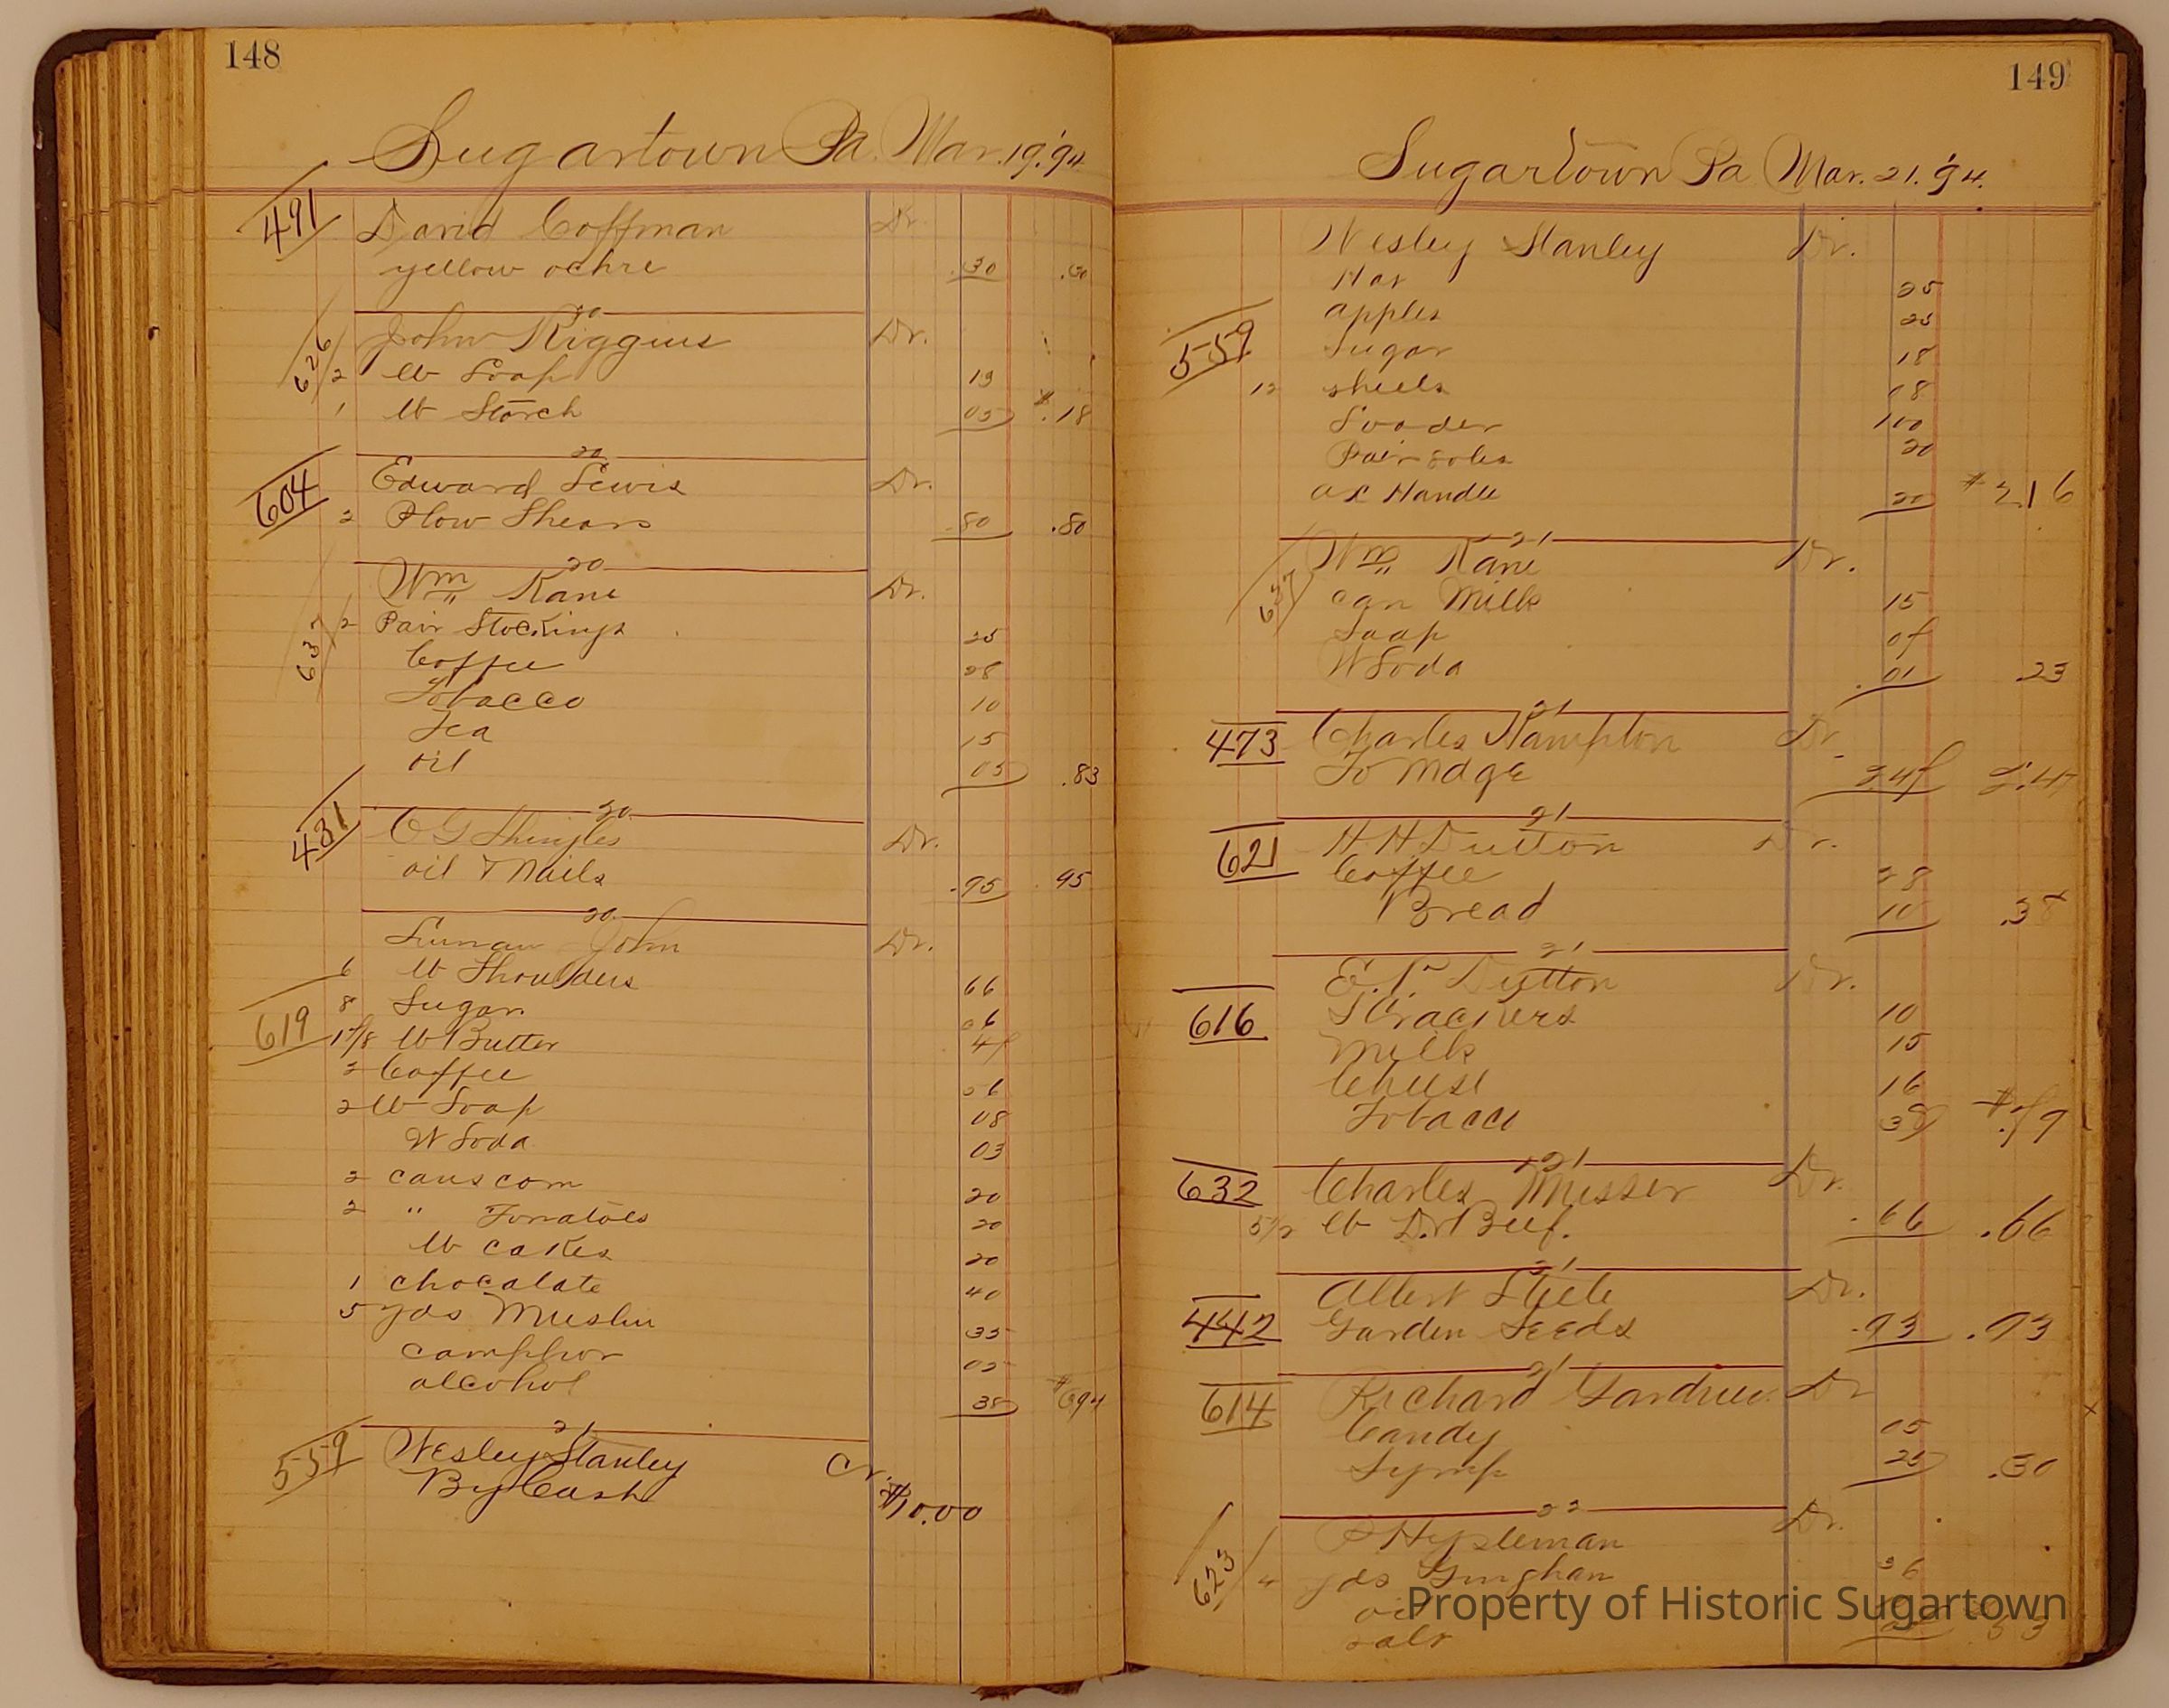 148
Sugartown Pa. Mar. 19. '94.
491 David Coffman Dr.
yellow ochre .30 .30
20
626 John Riggins Dr.
2 lb Soap 13
1 lb Starch 05 .18
20
604 Edward Lewis Dr.
2 Plow Shears .80 .80
20
637 Wm Kane Dr.
2 Pair Stockings 25
Coffee 28
Tobacco 10
Tea 15
oil 05 .83
20
431 C G Shingles Dr.
oil & Nails .95 .95
20
John Dr.
6 lb Shoulders 66
8 Sugar
619 lb Butter
2 Coffee
2 lb Soap 08
W Soda 03
2 cans corn 20
2 " Tomatoes 20
lb cakes 20
1 chocalate 40
5 yds Muslin 35
camphor 05
alcohol
21
559 Wesley Stanley Cr.
By Cash $10.00
149
Sugartown Pa Mar. 21. '94.
Wesley Stanley Dr.
25
apples 25
559 Sugar 18
12 08
100
Pair soles 20
ax Handle 20 $2.16
21
637 Wm Kane Dr.
can Milk 15
Soap
W Soda 01 .23
21
473 Charles Hampton Dr.
To Mdge
21
621 H H Dutton Dr.
Coffee 28
Bread 10 .38
21
E. Dutton Dr.
616 Crackers 10
Milk 15
Cheese 16
Tobacco 38
21
632 Charles Musser Dr.
5 1/2 lb D. Beef. .66 .66
21
Albert Steele Dr.
442 Garden Seeds .93 .93
21
614 Richard Gardner. Dr
Candy 05
Syrup 25 .30
22
Dr.
623 4 yds Gingham 36
oil
salt
Property of Historic Sugartown